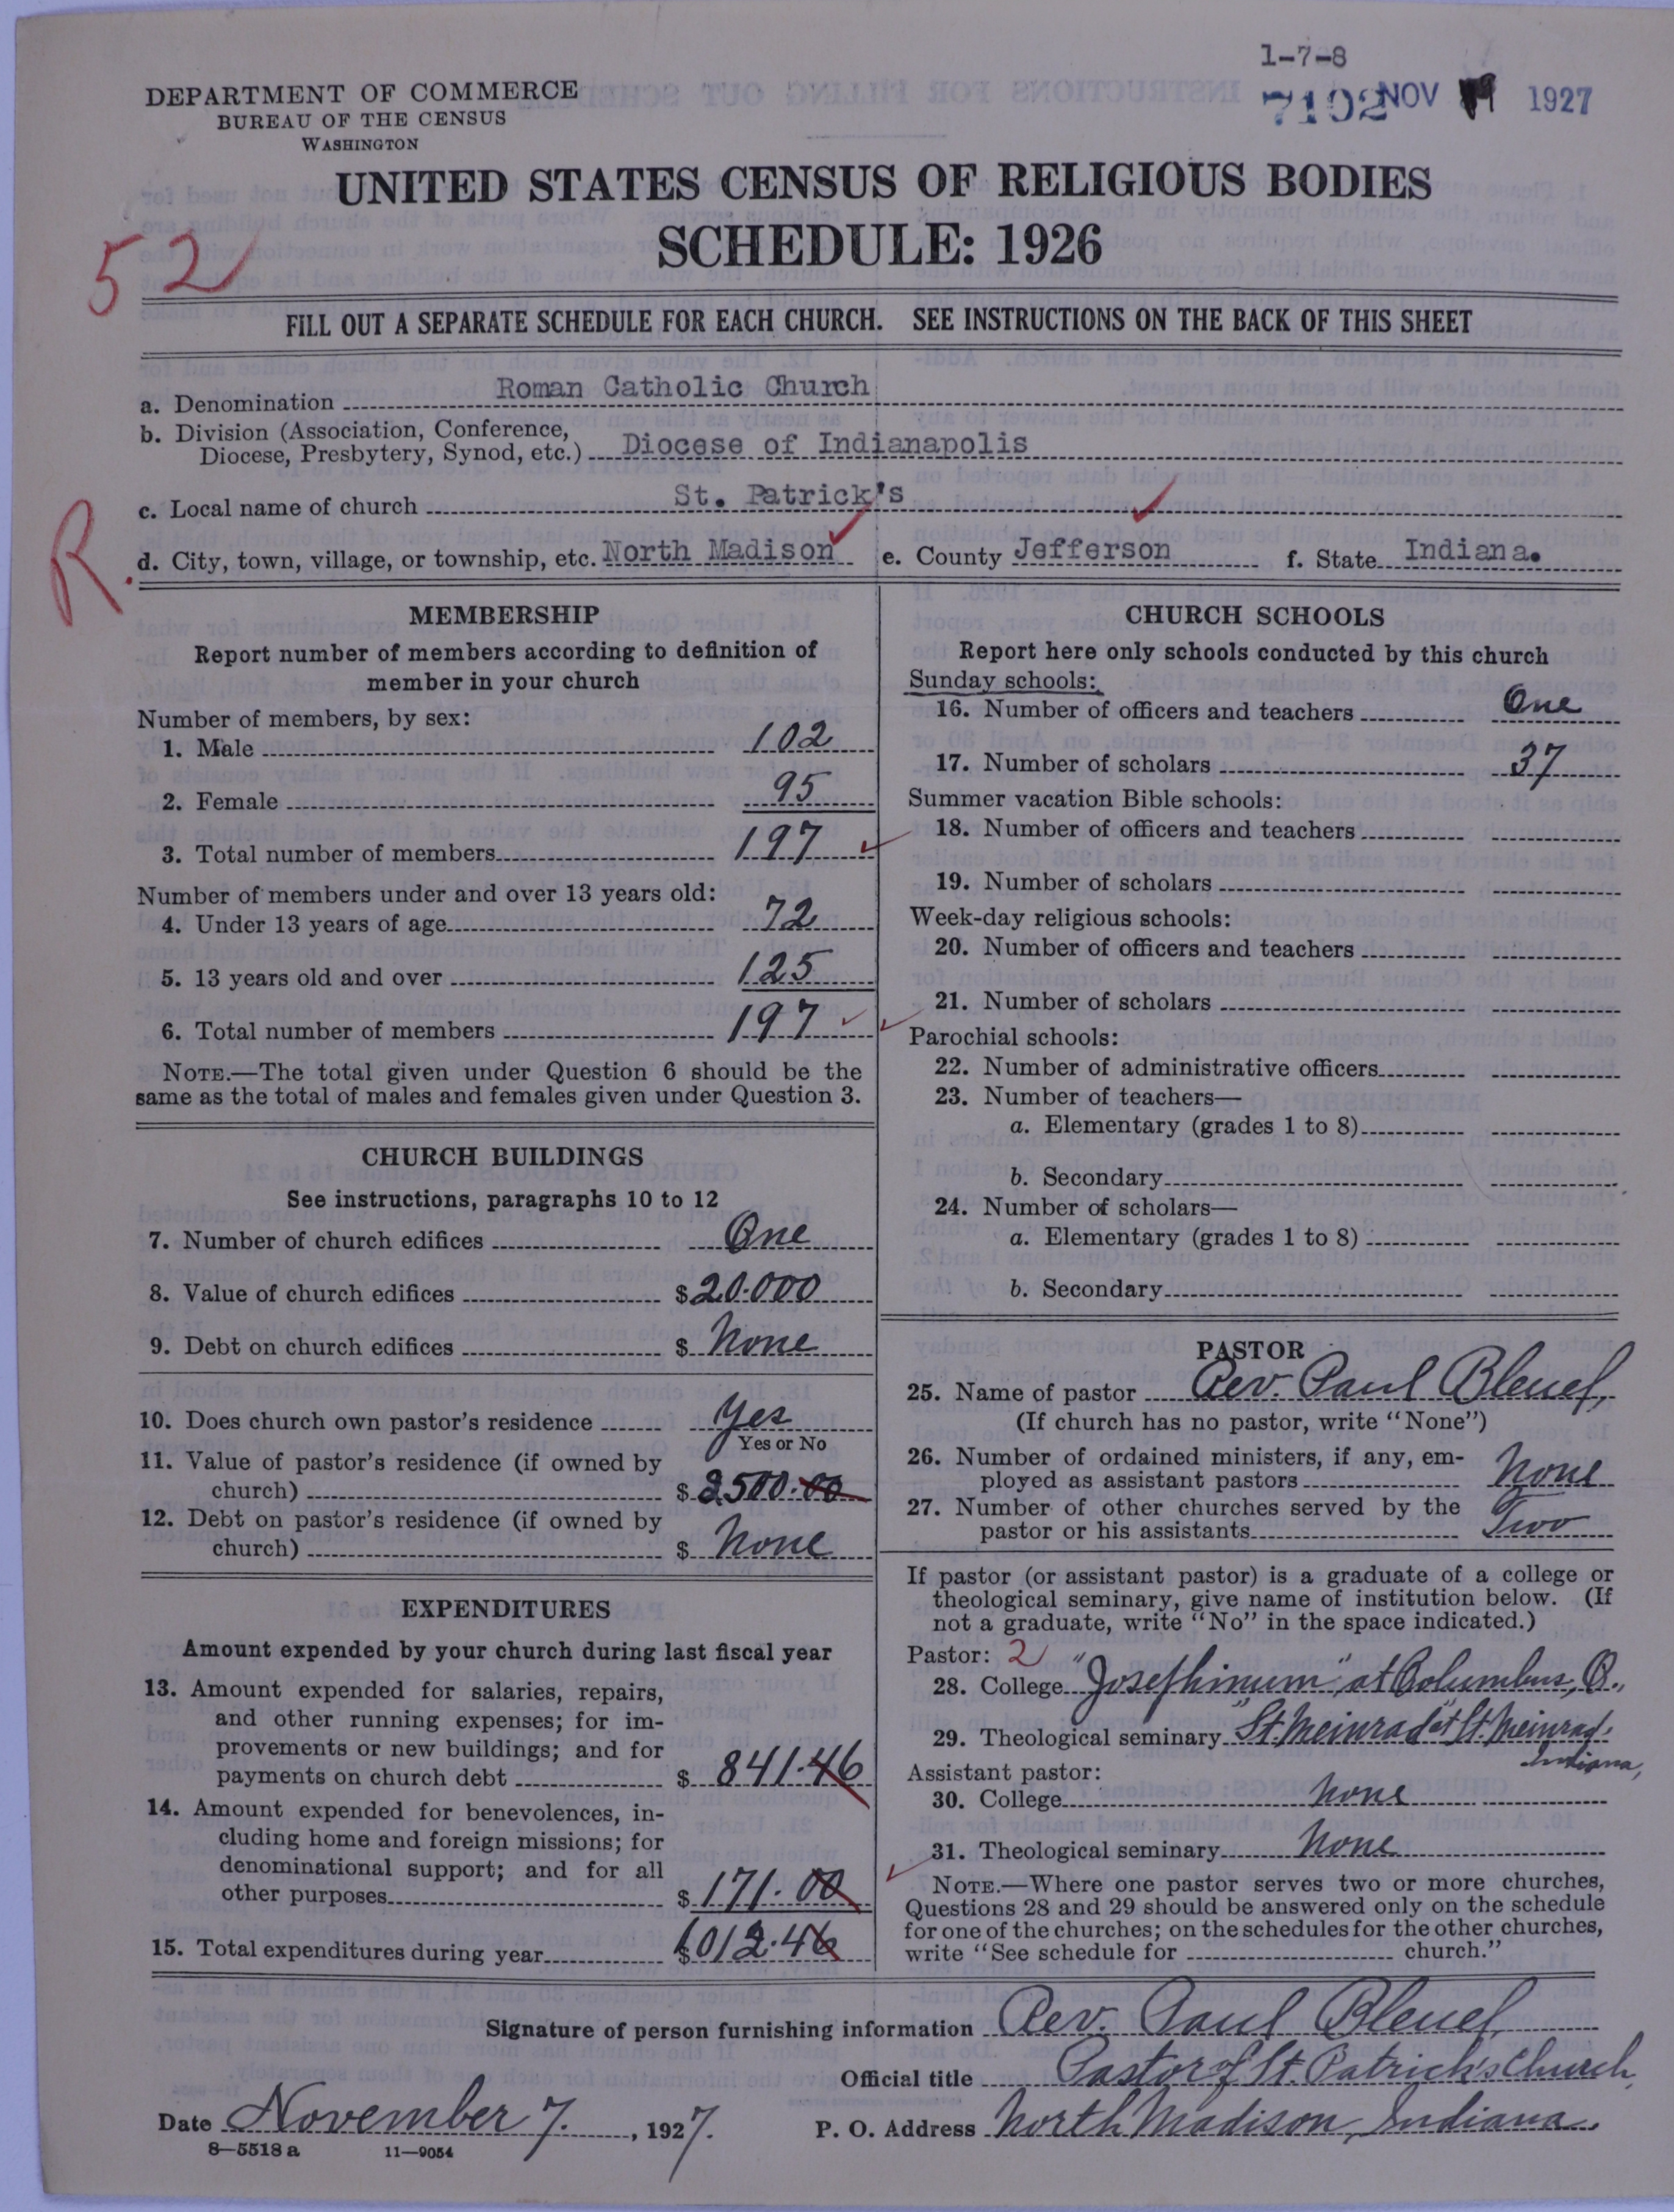 1-7-8
7192 NOV 1927
DEPARTMENT OF COMMERCE
BUREAU OF THE CENSUS
WASHINGTON
UNITED STATES CENSUS OF RELIGIOUS BODIES
SCHEDULE: 1926
52
FILL OUT A SEPARATE SCHEDULE FOR EACH CHURCH. SEE INSTRUCTIONS ON THE BACK OF THIS SHEET
a. Denomination Roman Catholic Church
b. Division (Association, Conference,
Diocese, Presbytery, Synod, etc.) Diocese of Indianapolis
c. Local name of church St. Patrick's
R.
d. City, town, village, or township, etc. North Madison e. County Jefferson f. State Indiana.
MEMBERSHIP
Report number of members according to definition of
member in your church
Number of members, by sex:
1. Male 102
2. Female 95
3. Total number of members 197
Number of members under and over 13 years old:
4. Under 13 years of age 72
5. 13 years old and over 125
6. Total number of members 197
NOTE.—The total given under Question 6 should be the
same as the total of males and females given under Question 3.
CHURCH BUILDINGS
See instructions, paragraphs 10 to 12
7. Number of church edifices One
8. Value of church edifices $20.000
9. Debt on church edifices $ None
10. Does church own pastor's residence Yes
Yes or No
11. Value of pastor's residence (if owned by
church) $ 2500.00
12. Debt on pastor's residence (if owned by
church) $ None
EXPENDITURES
Amount expended by your church during last fiscal year
13. Amount expended for salaries, repairs,
and other running expenses; for im-
provements or new buildings; and for
payments on church debt $ 841.46
14. Amount expended for benevolences, in-
cluding home and foreign missions; for
denominational support; and for all
other purposes $ 171.00
15. Total expenditures during year $1012.46
CHURCH SCHOOLS
Report here only schools conducted by this church
Sunday schools:
16. Number of officers and teachers One
17. Number of scholars 37
Summer vacation Bible schools:
18. Number of officers and teachers
19. Number of scholars
Week-day religious schools:
20. Number of officers and teachers
21. Number of scholars
Parochial schools:
22. Number of administrative officers
23. Number of teachers—
a. Elementary (grades 1 to 8)
b. Secondary
24. Number of scholars—
a. Elementary (grades 1 to 8)
b. Secondary
PASTOR
25. Name of pastor Rev. Paul Bleuel,
(If church has no pastor, write "None")
26. Number of ordained ministers, if any, em-
ployed as assistant pastors None
27. Number of other churches served by the
pastor or his assistants Two
If pastor (or assistant pastor) is a graduate of a college or
theological seminary, give name of institution below. (If
not a graduate, write "No" in the space indicated.)
Pastor: 2
28. College "Josephinum" at Columbus, O.,
29. Theological seminary "St. Meinrad" at St. Meinrad.
Indiana,
Assistant pastor:
30. College None
31. Theological seminary None
NOTE.—Where one pastor serves two or more churches,
Questions 28 and 29 should be answered only on the schedule
for one of the churches; on the schedules for the other churches,
write "See schedule for church."
Signature of person furnishing information Rev. Paul Bleuel,
Official title Pastor of St. Patrick's Church,
Date November 7. , 1927. P. O. Address North Madison, Indiana.
8—5518 a 11—9054